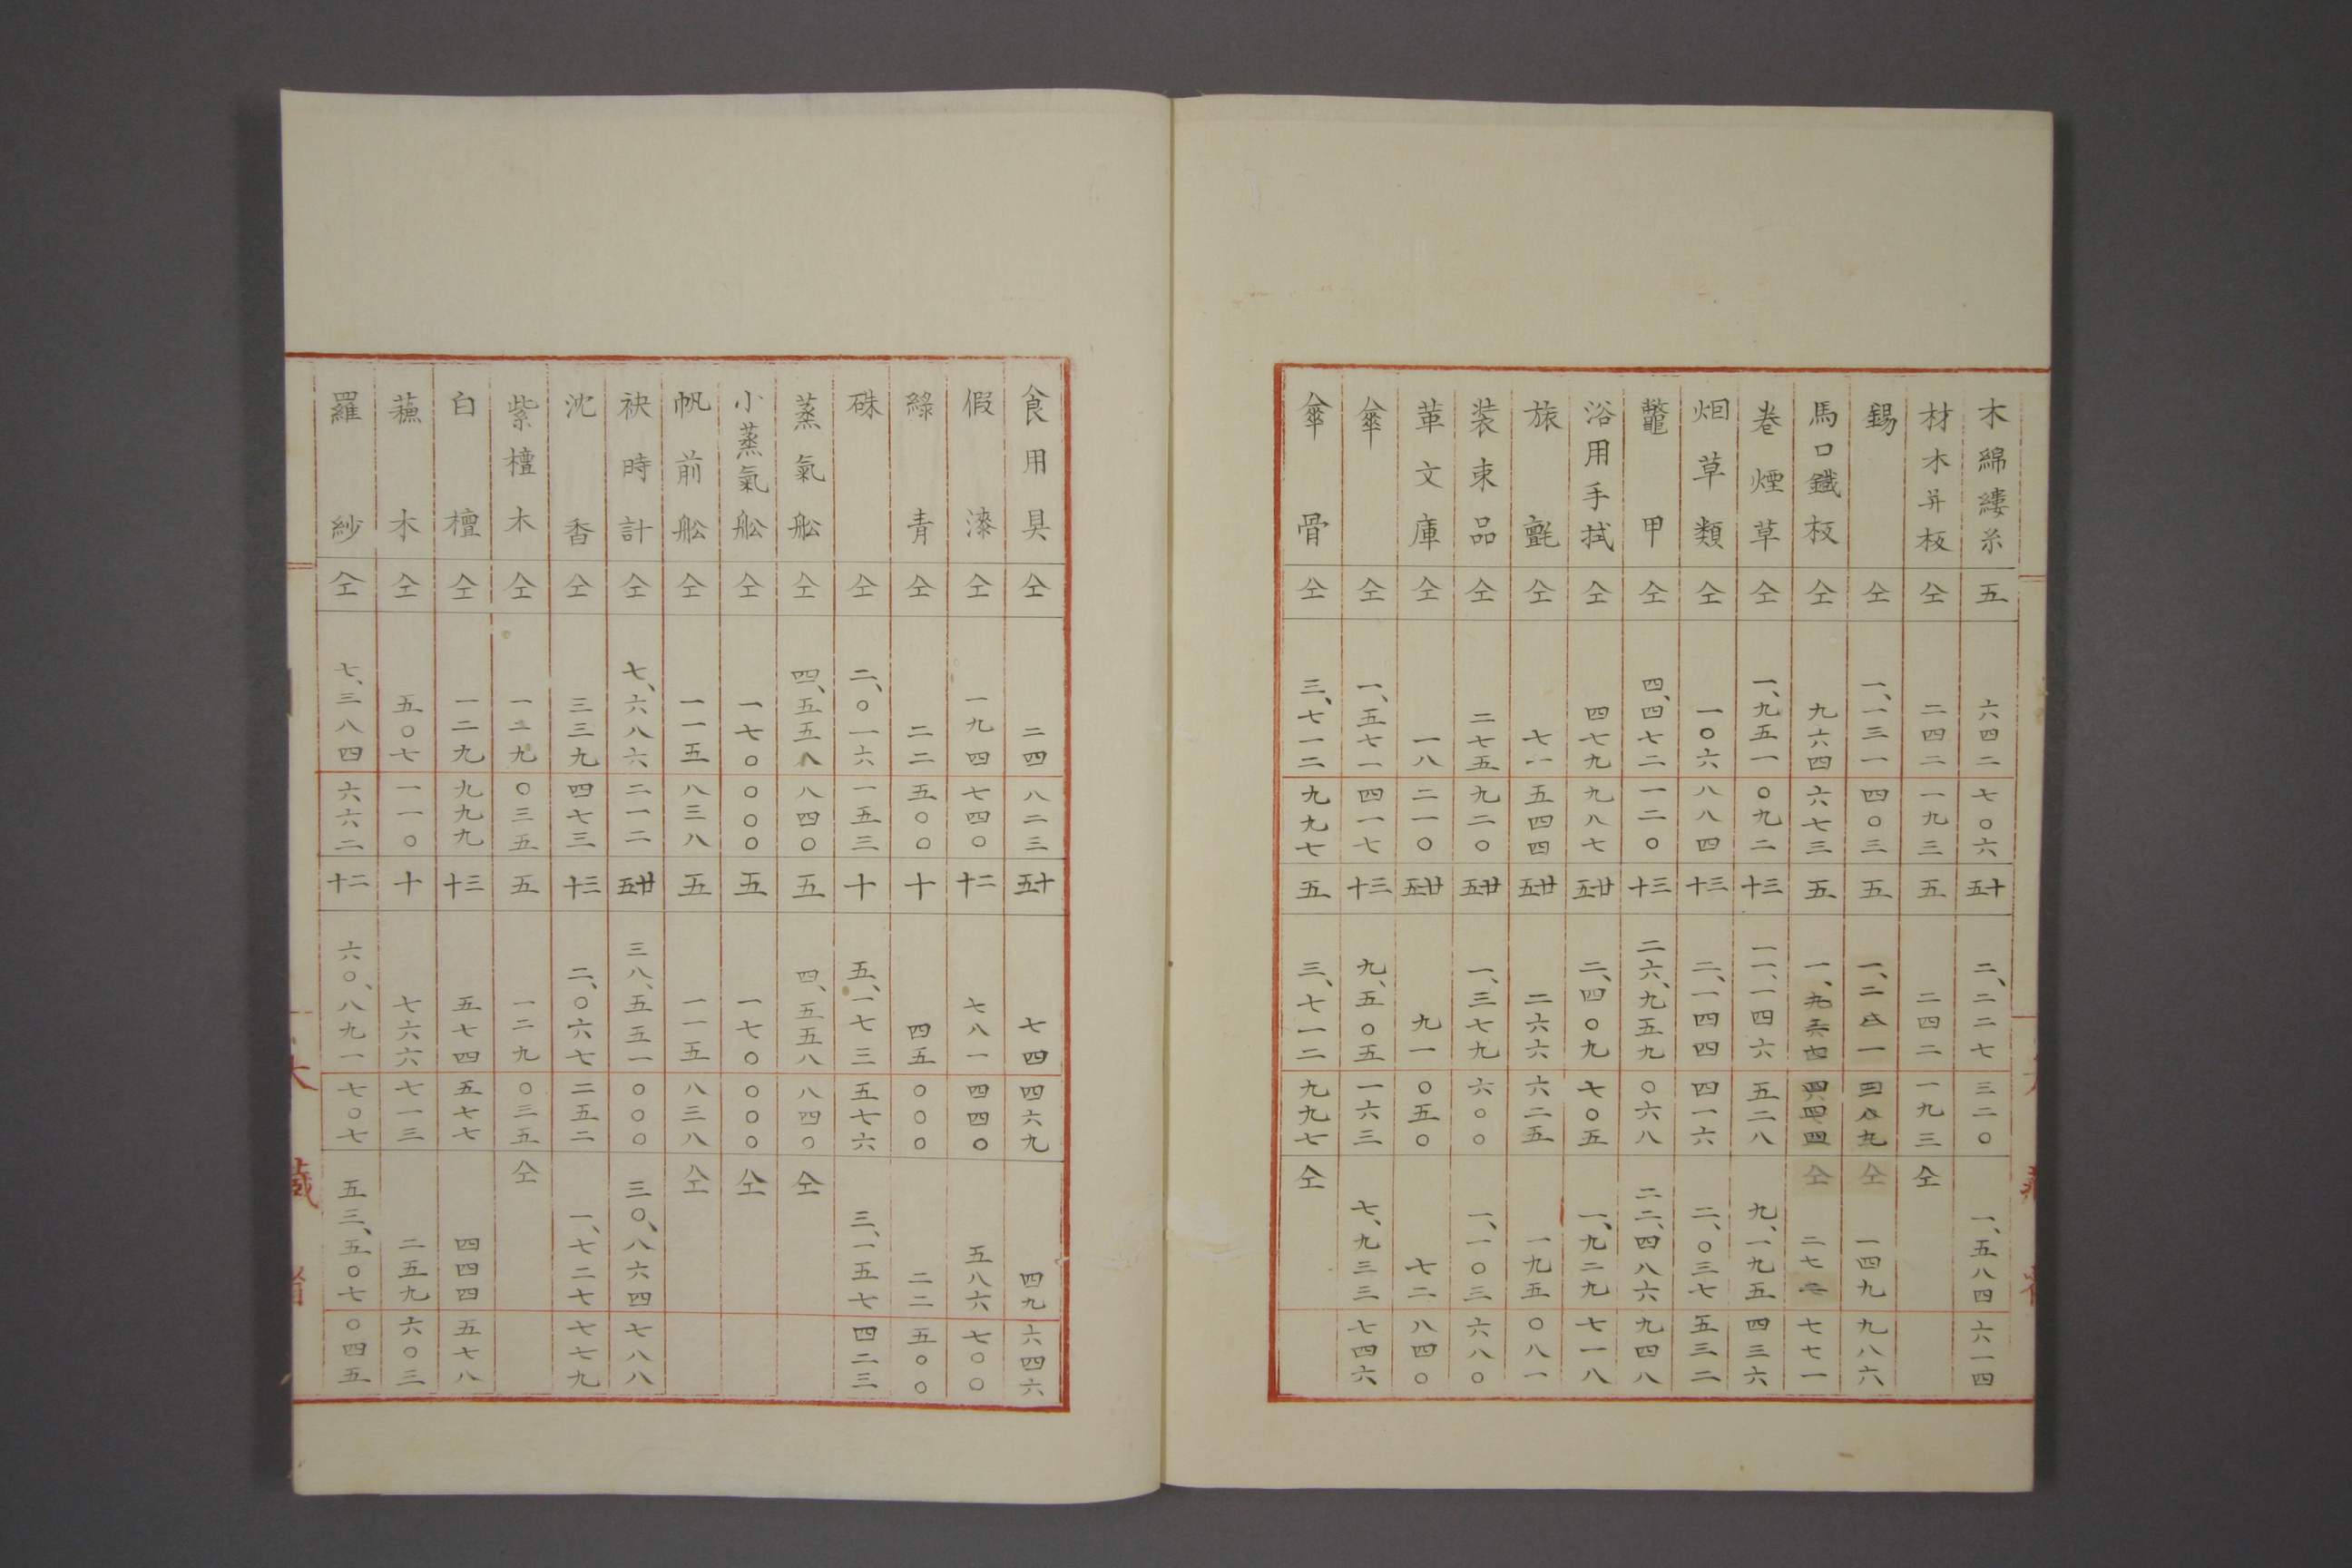 木綿縷糸 五 六四二 七〇六 十五 二、二二七 三二〇 一、五八四 六一四
材木并板 仝 二四二 一九三 五 二四二 一九三 仝
錫 仝 一、一三一 四〇三 五 一、二八一 三八九 仝 一四九 九八六
馬口鐵板 仝 九六四 六七三 五 仝 七七一
巻煙草 仝 一、九五一 〇九二 十三 一一、一四六 五二八 九、一九五 四三六
烟草類 仝 一〇六 八八四 十三 二、一四四 四一六 二、〇三七 五三二
鼈甲 仝 四、四七二 一二〇 十三 二六、九五九 〇六八 二二、四八六 九四八
浴用手拭 仝 四七九 九八七 廿五 二、四〇九 七〇五 一、九二九 七一八
旅氈 仝 七一 五四四 廿五 二六六 六二五 一九五 〇八一
装束品 仝 二七五 九二〇 廿五 一、三七九 六〇〇 一、一〇三 六八〇
革文庫 仝 一八 二一〇 廿五 九一 〇五〇 七二 八四〇
傘 仝 一、五七一 四一七 十三 九、五〇五 一六三 七、九三三 七四六
傘骨 仝 三、七一二 九九七 五 三、七一二 九九七 仝
食用具 仝 二四 八二三 十五 七四 四六九 四九 六四六
假漆 仝 一九四 七四〇 十二 七八一 四四〇 五八六 七〇〇
緑青 仝 二二 五〇〇 十 四五 〇〇〇 二二 五〇〇
硃 仝 二、〇一六 一五三 十 五、一七三 五七六 三、一五七 四二三
蒸氣舩 仝 四、五五八 八四〇 五 四、五五八 八四〇 仝
小蒸氣舩 仝 一七〇 〇〇〇 五 一七〇 〇〇〇 仝
帆前舩 仝 一一五 八三八 五 一一五 八三八 仝
袂時計 仝 七、六八六 二一二 廿五 三八、五五一 〇〇〇 三〇、八六四 七八八
沈香 仝 三三九 四七三 十三 二、〇六七 二五二 一、七二七 七七九
紫檀木 仝 一二九 〇三五 五 一二九 〇三五 仝
白檀 仝 一二九 九九九 十三 五七四 五七七 四四四 五七八
蘓木 仝 五〇七 一一〇 十 七六六 七一三 二五九 六〇三
羅紗 仝 七、三八四 六六二 十二 六〇、八九一 七〇七 五三、五〇七 〇四五
大藏省